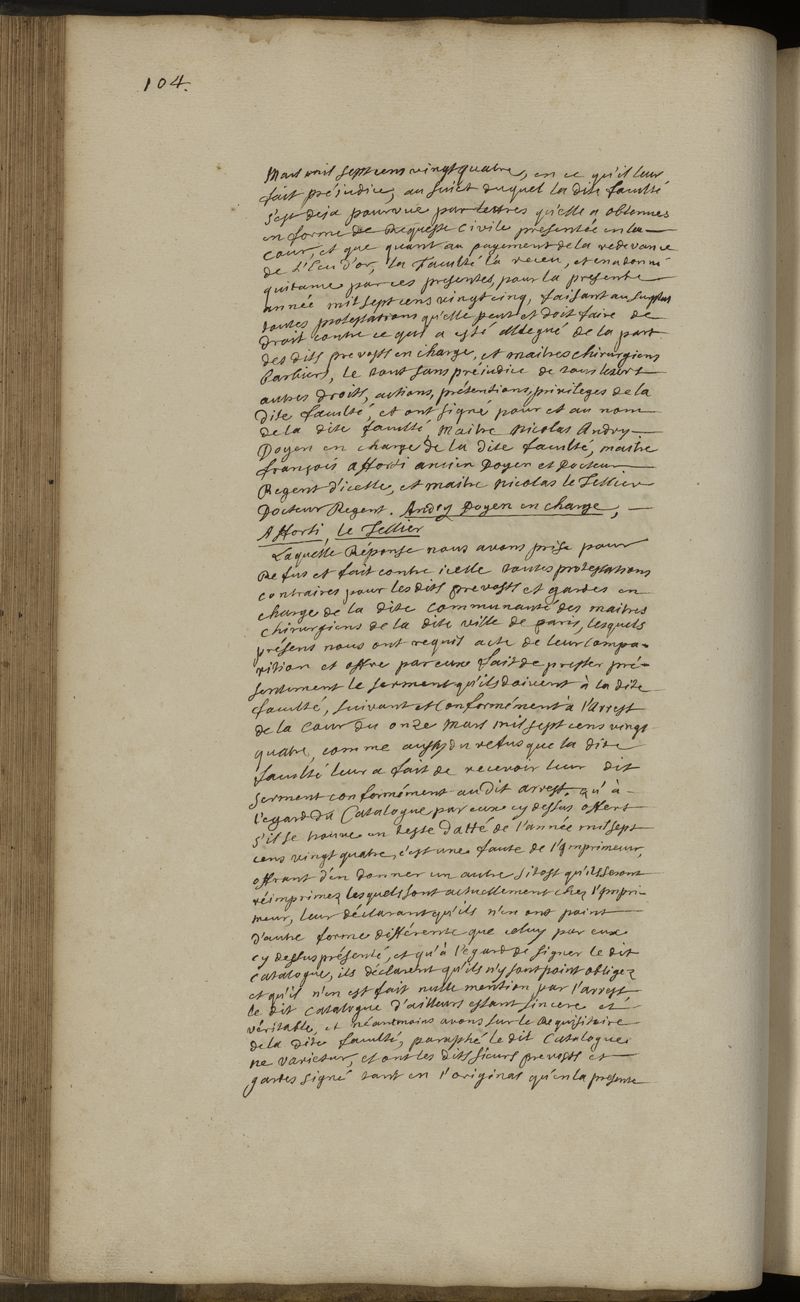 104.
Mars mil sept cens vingt quatre, en ce qu'il leur
fait préjudice, au sujet duquel la dite faculté
s'est deja pourvue par lettres qu'elle a obtenues
en forme de Requeste Civile présentée en la
cour, et que quant au payement de la redevance
de L'Ecu d'or, la Faculté l'a receu, et en a donné
quitance par ces presentes, pour la presente
année mil sept cens vingt cinq, faisant au surplus
toutes protestations qu'elle peut et doit faire de
droit contre ce qui a esté allegué de la part
des dits prevosts en charge, et maitres chirurgiens
barbiers, le tout sans préjudice de tous leurs
autres droits, actions, prétentions, privileges de la
dite faculté, et ont signé pour et au nom
de la dite faculté Maitre Nicolas Andry
Doyen en charge de la dite faculté, maitre
françois Afforti ancien Doyen et Docteur
Regent d'icelle, et maitre Nicolas le Tellier
Docteur Regent. Andry Doyen en charge,
Afforti, Le Tellier
Laquelle Réponse nous avons prise pour
Refus et fait contre icelle toutes protestations
contraires pour les dits prevosts et gardes en
charge de la dite communauté des maitres
chirurgiens de la dite ville de paris, lesquels
présens nous ont requis acte de leur compa-
rition et offre par eux fait de prester pré-
sentement le serment qu'ils doivent à la dite
faculté, suivant et conformément à l'Arrest
de la Cour du onze Mars mil sept cens vingt
quatre, comme aussy du refus que la dite
faculté leur a fait de recevoir leur dit
serment conformément au dit arrest, qu'à
l'egard du Catalogue par eux cy dessus offert
s'il se trouve un texte datté de l'année mil sept
cens vingt quatre, c'est une faute de l'Imprimeur,
offrant d'en donner un autre sitost qu'ils seront
réimprimez lesquels sont actuellement chez l'Impri-
meur, leur déclarant qu'ils n'en ont point
d'autre forme differente que celuy par eux
cy dessus présenté, et qu'à l'egard de signer le dit
catalogue, ils déclarent qu'ils n'y sont point obligez
et qu'il n'en est fait nulle mention par l'arrest
le dit catalogue d'ailleurs estant sincere et
véritable, et néantmoins avons sur le Requisitoire
de la dite faculté, paraphé le dit Catalogue
ne varietur, et ont les dits sieurs prevosts et
gardes signé tant en l'original qu'en la presente